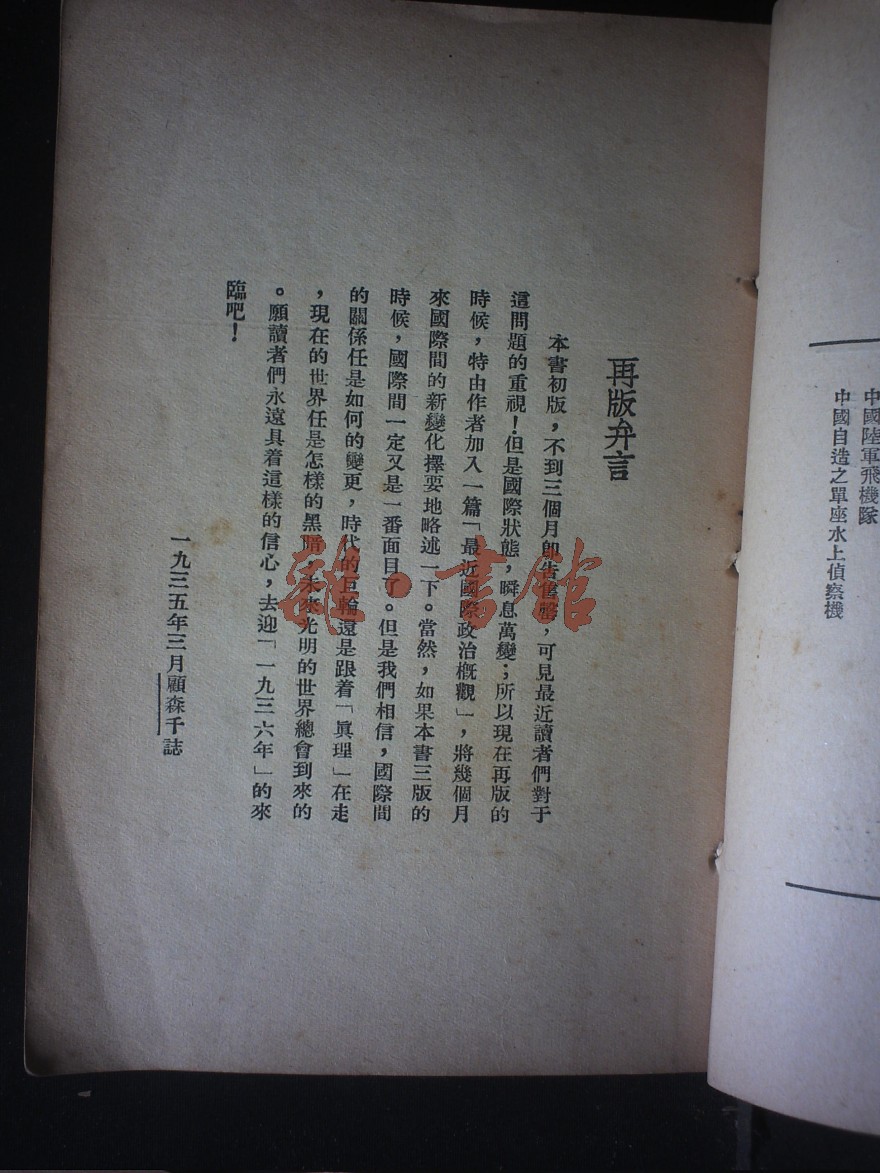 中國陸軍飛機隊
中國自造之單座水上偵察機
再版弁言
本書初版，不到三個月卽告售罄，可見最近讀者們對于
這問題的重視！但是國際狀態，瞬息萬變；所以現在再版的
時候，特由作者加入一篇「最近國際政治概觀」，將幾個月
來國際間的新變化擇要地略述一下。當然，如果本書三版的
時候，國際間一定又是一番面目了。但是我們相信，國際間
的關係任是如何的變更，時代的巨輪還是跟着「眞理」在走
，現在的世界任是怎樣的黑暗，未來光明的世界總會到來的
。願讀者們永遠具着這樣的信心，去迎「一九三六年」的來
臨吧！
一九三五年三月顧森千誌
雜·書館